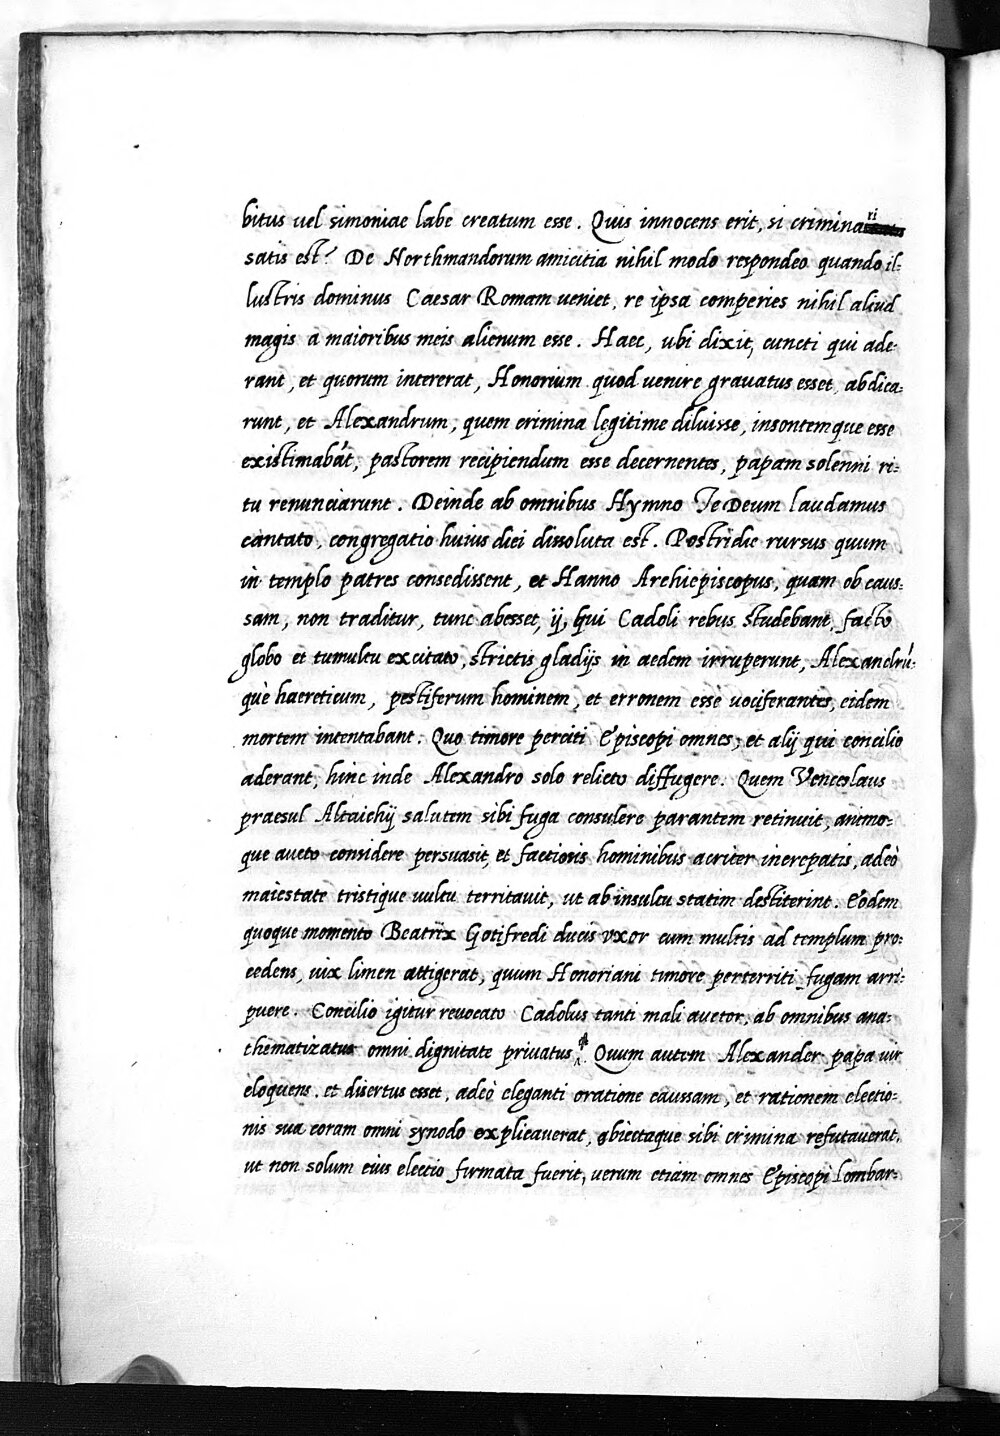 bitus vel simoniae labe creatum esse. Quis innocens erit, si criminari
satis est? De Northmandorum amicitia nihil modo respondeo quando il-
lustris dominus Caesar Romam veniet, re ipsa comperies nihil aliud
magis a maioribus meis alienum esse. Haec, ubi dixit, cuncti qui ade-
rant, et quorum intererat, Honorium quod venire gravatus esset, abdica-
runt, et Alexandrum, quem crimina legitime diluisse, insontemque esse
existimabāt, pastorem recipiendum esse decernentes, papam solenni ri-
tu renunciarunt. Deinde ab omnibus Hymno Te Deum laudamus
cantato, congregatio huius diei dissoluta est. Postridie rursus quum
in templo patres consedissent, et Hanno Archiepiscopus, quam ob caus-
sam, non traditur, tunc abesset, ij, qui Cadoli rebus studebant, facto
globo et tumultu excitato, strictis gladijs in aedem irruperunt, Alexandrū-
què haereticum, pestiferum hominem, et erronem esse vociferantes, eidem
mortem intentabant. Quo timore perciti Episcopi omnes, et alij qui concilio
aderant, hinc inde Alexandro solo relicto diffugere. Quem Venceslaus
praesul Altaichij salutem sibi fuga consulere parantem retinuit, animo-
que aucto considere persuasit, et factionis hominibus acriter increpatis, adeò
maiestate tristique vultu territavit, ut ab insultu statim destiterint. Eodem
quoque momento Beatrix Gotifredi ducis uxor cum multis ad templum pro-
cedens, vix limen attigerat, quum Honoriani timore perterriti fugam arri-
puere. Concilio igitur revocato Cadolus tanti mali auctor, ab omnibus ana-
thematizatus omni dignitate privatus. Quum autem Alexander papa vir
eloquens, et disertus esset, adeò eleganti oratione caussam, et rationem electio-
nis sua coram omni synodo explicaverat, obiectaque sibi crimina refutaverat,
ut non solum eius electio firmata fuerit, verum etiam omnes Episcopi Lombar-